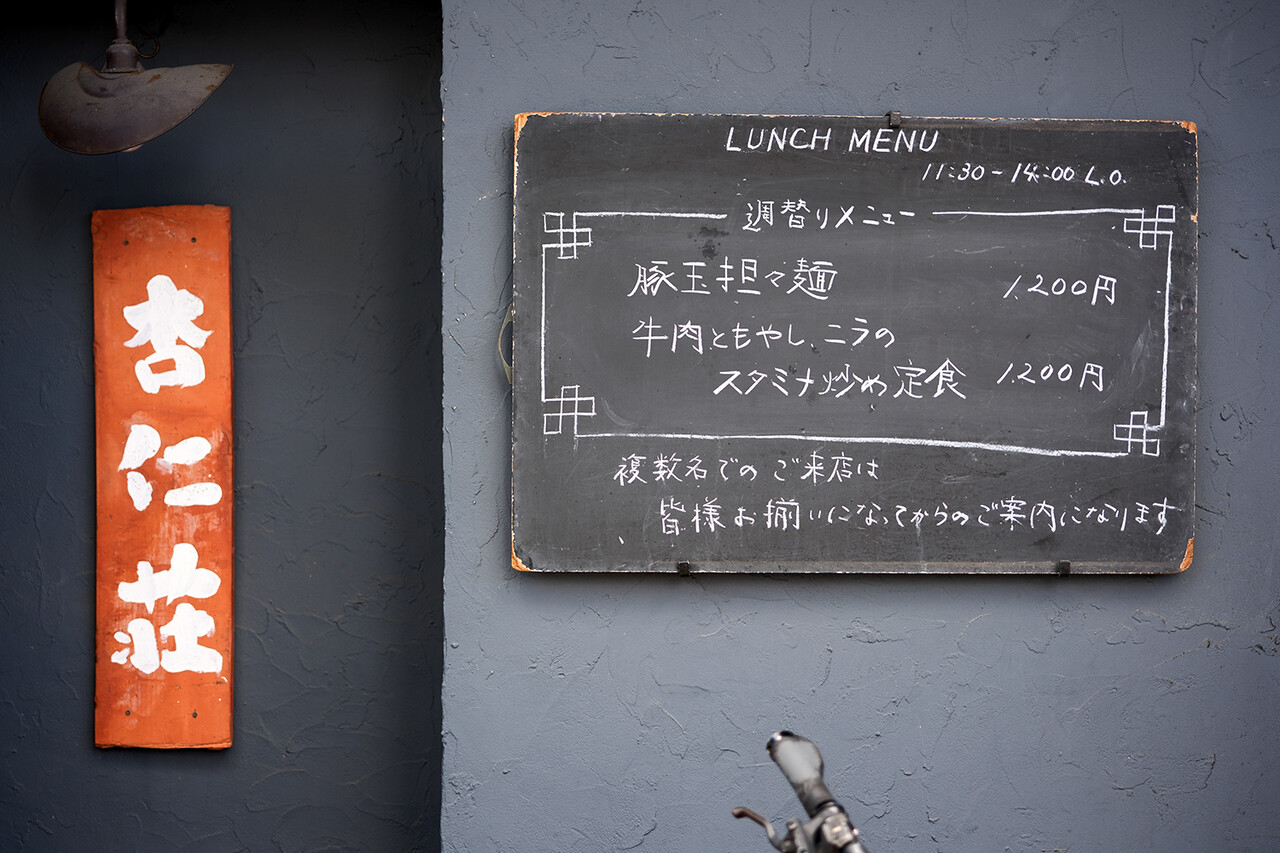 杏仁荘
LUNCH MENU
11:30-14:00 L.O.
週替りメニュー
豚玉担々麺 1,200円
牛肉ともやし、ニラの
スタミナ炒め定食 1,200円
複数名でのご来店は
皆様お揃いになってからのご案内になります